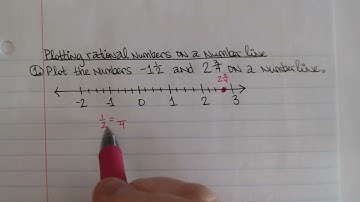 Plotting rational numbers on a Number line
① Plot the numbers -1 1/2 and 2 3/4 on a Numberline.
2 3/4
-2 -1 0 1 2 3
1/2 = /4